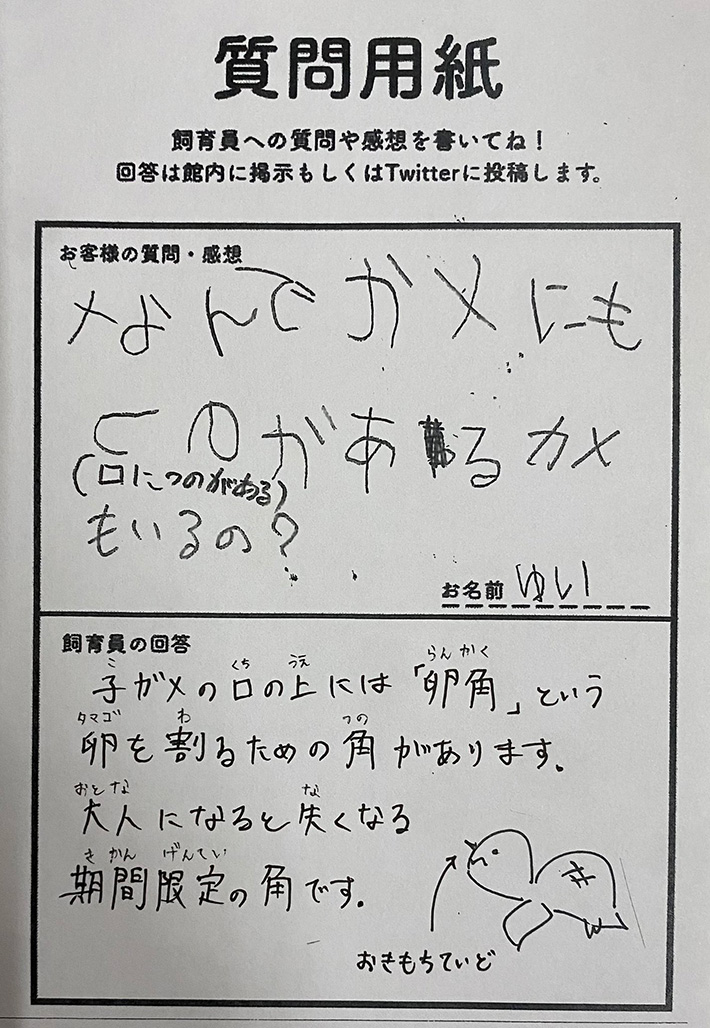 質問用紙
飼育員への質問や感想を書いてね！
回答は館内に掲示もしくはTwitterに投稿します。
お客様の質問・感想
なんでがメにも
つのがあるカメ
(口につのがある)
もいるの？
お名前 ゆい
飼育員の回答
子ガメの口の上には「卵角」という
卵を割るための角があります。
大人になると失くなる
期間限定の角です。
おきもちていど